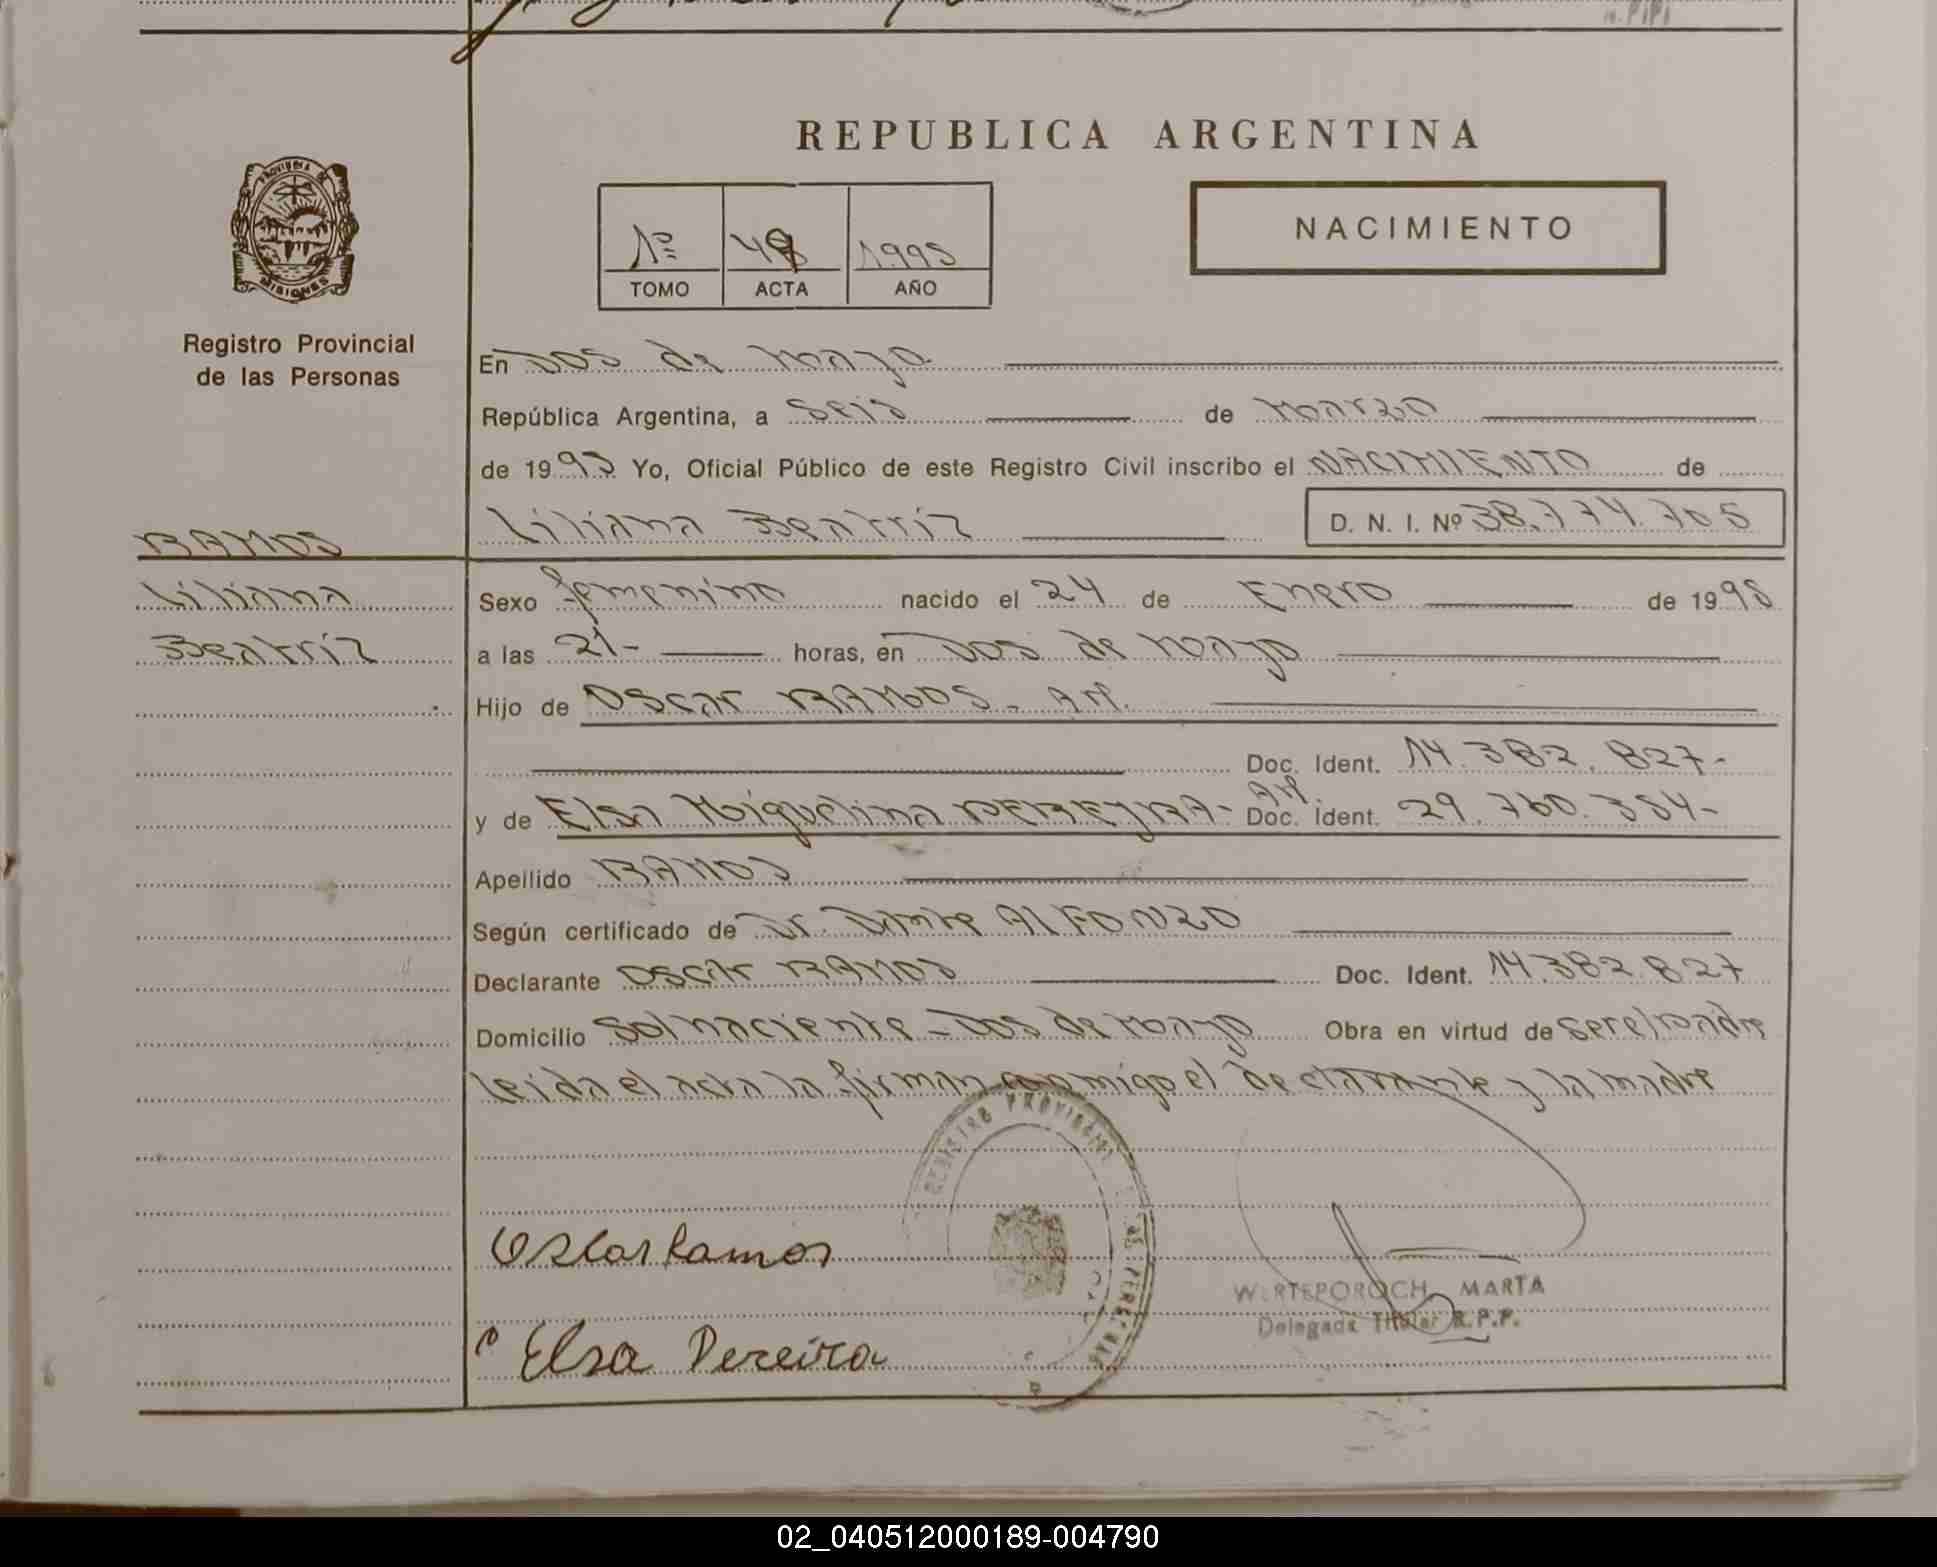 REPUBLICA ARGENTINA
PROVINCIA DE
MISIONES
Registro Provincial
de las Personas
1º 1995
TOMO ACTA AÑO
NACIMIENTO
En Dos de Mayo
República Argentina, a Seis de Marzo
de 1995 Yo, Oficial Público de este Registro Civil inscribo el NACIMIENTO de
RAMOS
Liliana Beatríz D. N. I. Nº 38.774.705
Liliana
Beatríz
Sexo femenino nacido el 24 de Enero de 1995
a las 21- horas, en Dos de Mayo
Hijo de Oscar RAMOS - Arg.
Doc. Ident. 14.382.827-
y de Elsa Miguelina PEREYRA- Arg. Doc. Ident. 29.760.354-
Apellido RAMOS
Según certificado de Dr. Dante ALFONZO
Declarante Oscar RAMOS Doc. Ident. 14.382.827
Domicilio Sol naciente - Dos de Mayo Obra en virtud de ser el padre
Leida el acta la firman conmigo el declarante y la madre
REGISTRO PROVINCIAL DE LAS PERSONAS
Oscar Ramos
MARTA
Delegada Titular R.P.P.
Elsa Pereira
02_040512000189-004790